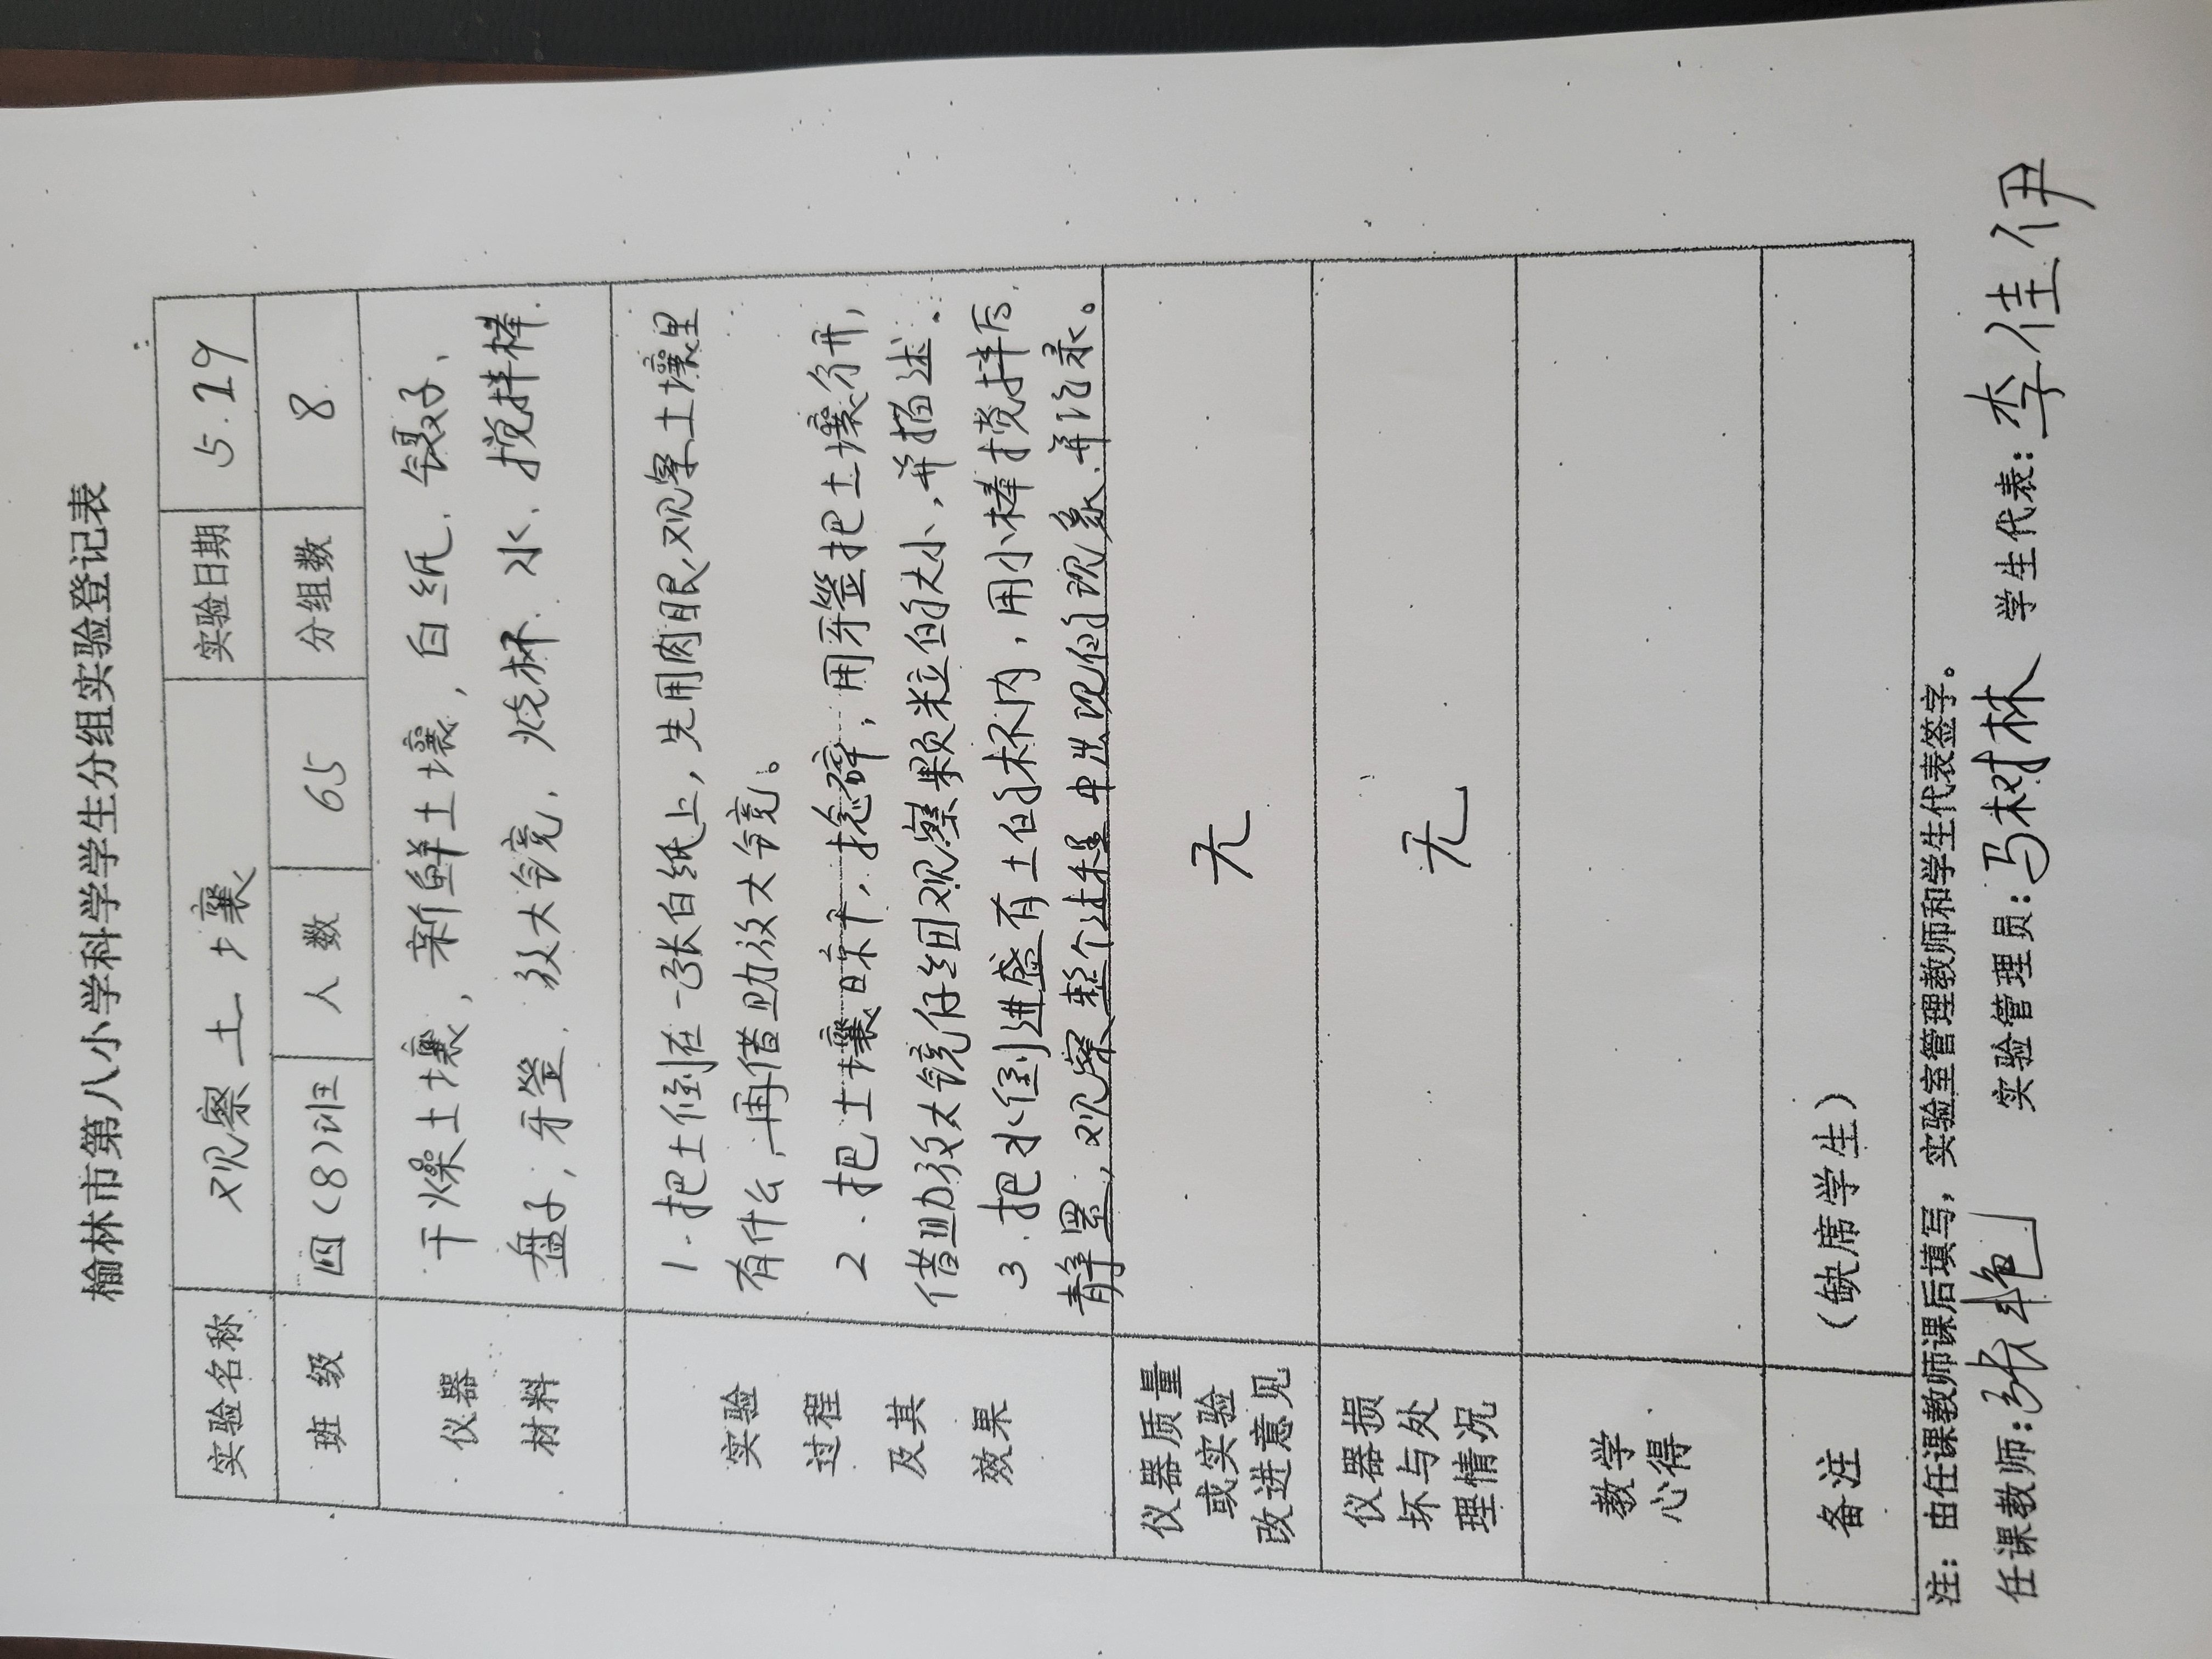 榆林市第八小学科学学生分组实验登记表
实验名称 观察土壤 实验日期 5.19
班级 四(8)班 人数 65 分组数 8
仪器材料
干燥土壤、新鲜土壤,白纸、镊子、
盘子,牙签、放大镜、烧杯、水、搅拌棒.
实验过程及其效果
1.把土倒在一张白纸上,先用肉眼,观察土壤里
有什么,再借助放大镜。
2.把土壤晾干,捻碎,用牙签把土壤分开,
借助放大镜仔细观察颗粒的大小,并描述.
3.把水倒进盛有土的杯内,用小棒搅拌后
静置,观察整个过程中出现的现象,并记录。
仪器质量或实验改进意见
无
仪器损坏与处理情况
无
教学心得
备注 (缺席学生)
注:由任课教师课后填写,实验室管理教师和学生代表签字。
任课教师:张艳 实验管理员:马树林 学生代表:李佳伊